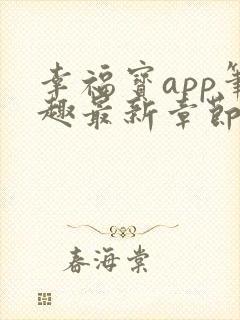 幸福宝app笔
趣最新章节
春海棠